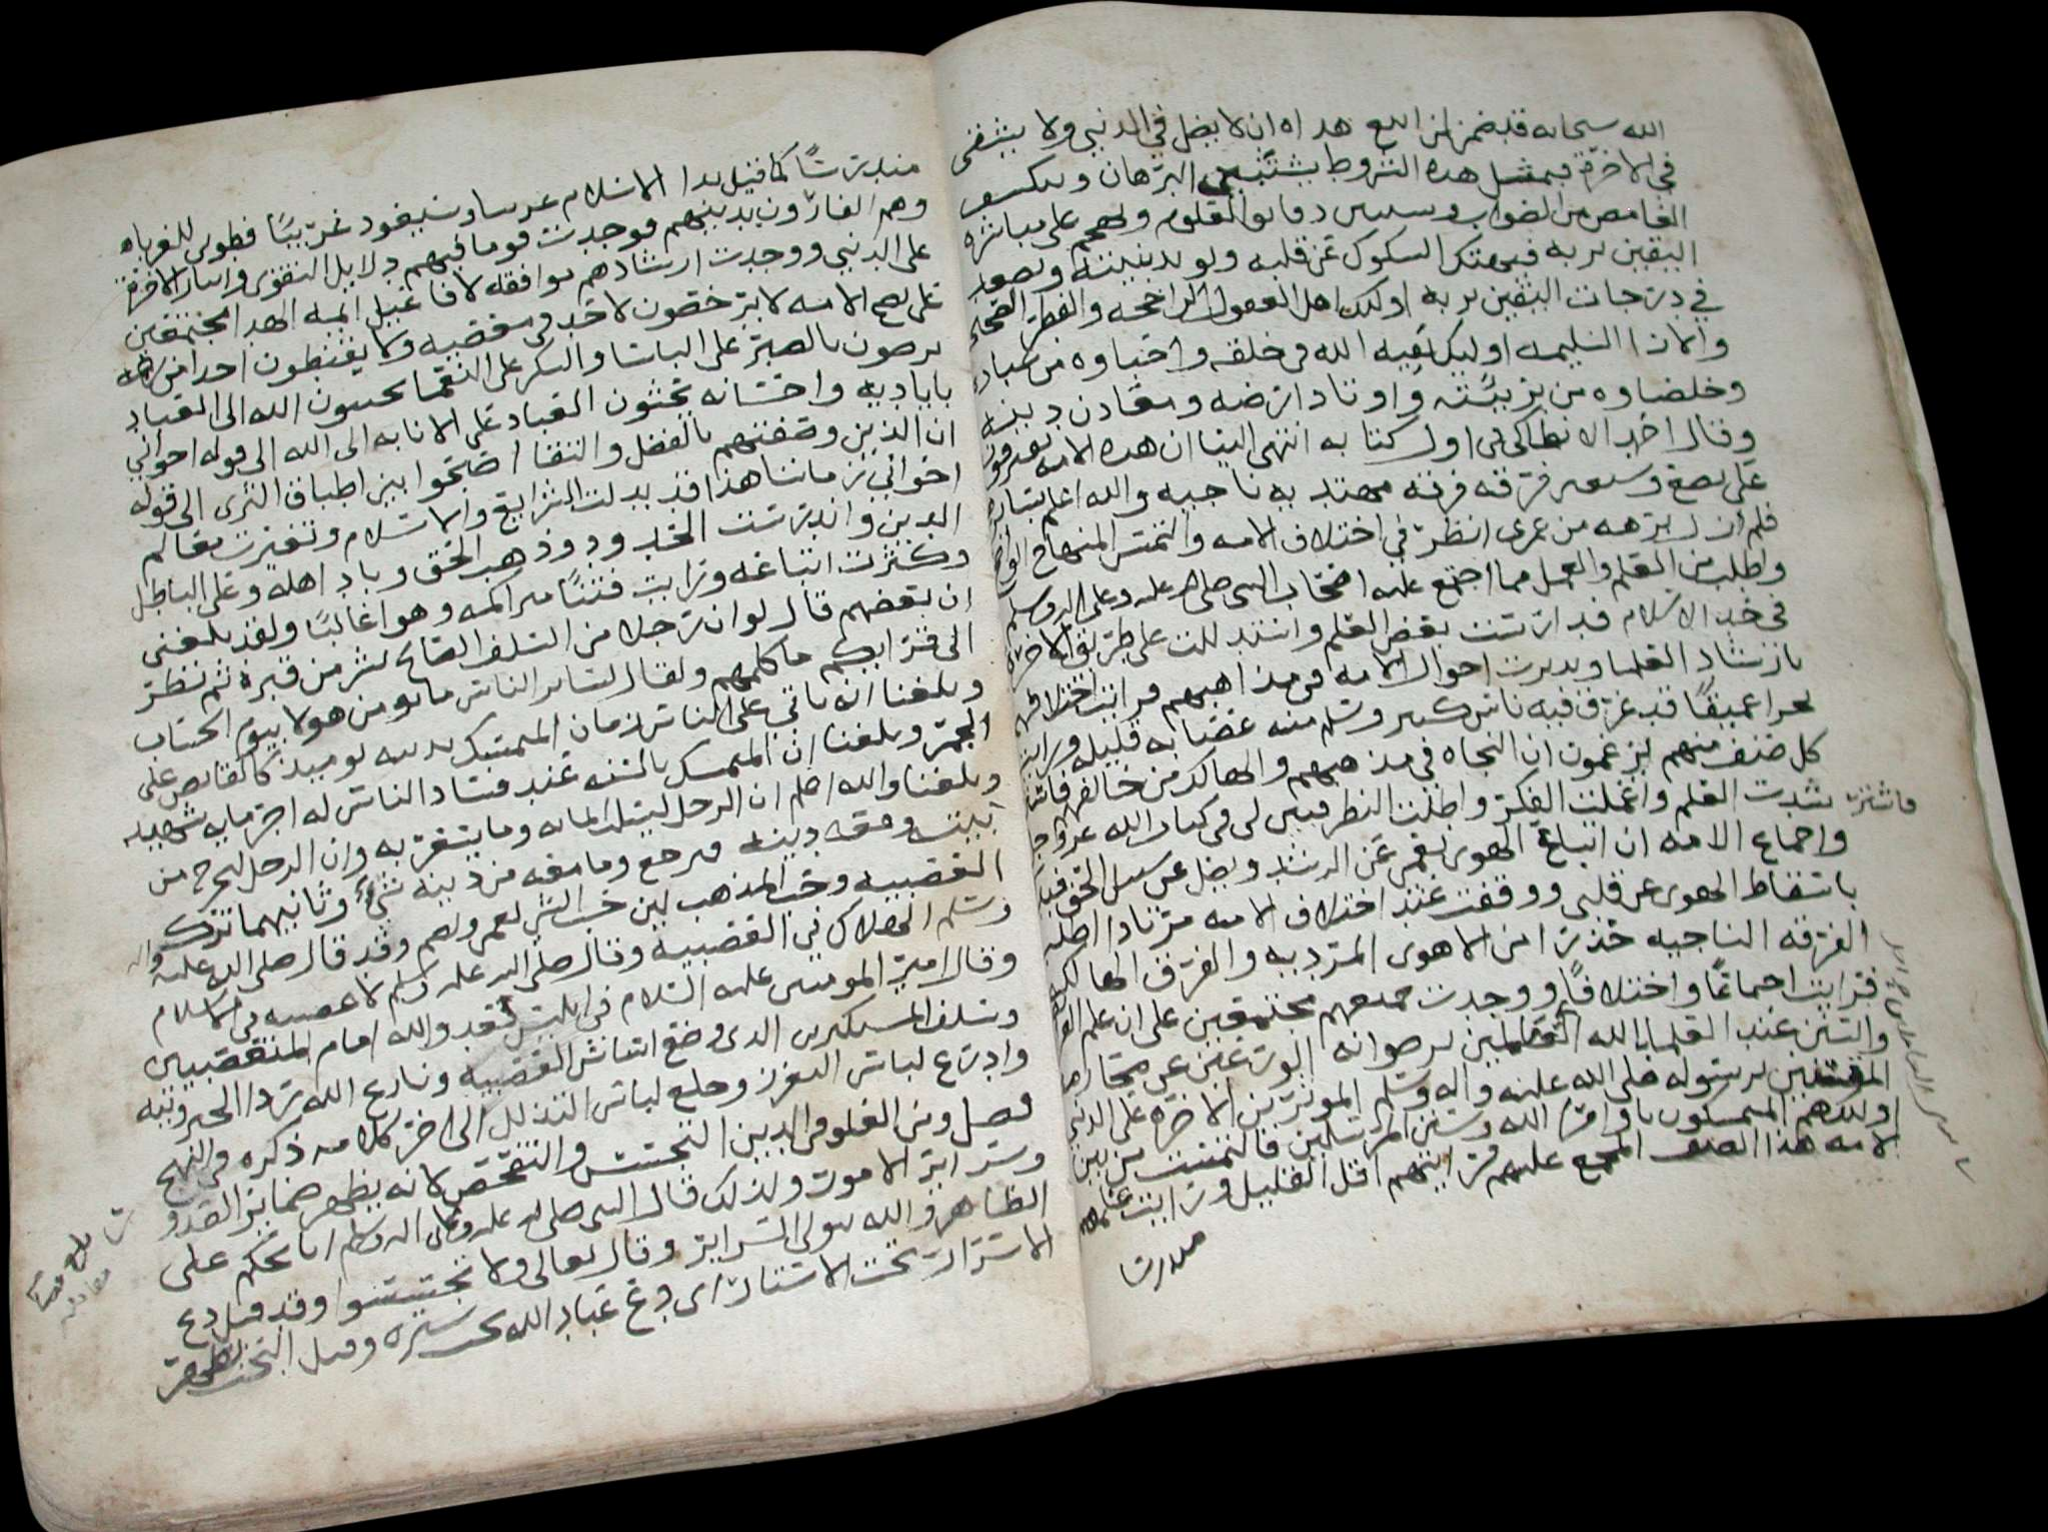 الله سبحانه قد ضمن لمن اتبع هداه ان لا يضل في الدنيى ولا يشقى
في الاخرة فبمثل هذه الشروط يستبين البرهان وينكشف
الغامض من الصواب ويستبين دقائق العلوم ويهجم على مباشرة
اليقين بربه فيهتك الشكوك عن قلبه ويويد بنيته ويصعد
في درجات اليقين بربه اولئك اهل العقول الراجحه والفطر الصحاح
والاذان السليمه اوليك بقيه الله في خلقه واحباوه من عباده
وخلصاوه من بريئته واوتاد ارضه ومعادن دينه
وقال احمد الانطاكي في اول كتابه انتهى الينا ان هذه الامه تفترقون
على بضع وسبعين فرقه فرقه مهتديه ناجيه والله اعلم بسائرها
فلم ازل برهه من عمري انظر في اختلاف الامه والتمس المنهاج الواضح
واطلب من العلم والعمل مما اجتمع عليه اصحاب النبي صلى الله عليه وعلى اله وسلم
في الاسلام قد ارتست بعض العلم واستدللت على طريق الاخره
بارشاد العلما وتدبرت احوال الامه في مذاهبهم فرايت اختلافهم
بحرا عميقا قد غرق فيه ناس كثير وسلم منه عصابه قليله ورايت
كل صنف منهم يزعمون ان النجاه في مذهبهم والهالك من خالفهم
فاسترشدت العلم واعملت الفكر واطلت النظر فتبين لي في كتاب الله عز وجل
واجماع الامه ان اتباع الهوى يعمي عن الرشد ويضل عن سبيل الحق فبدات
باسقاط الهوى عن قلبي ووقفت عند اختلاف الامه مرتادا لطلب
الفرقه الناجيه حذرا من الاهوى المرديه والفرق الهالكه
فرايت اجماعا واختلافا ووجدت جميعهم مجتمعين على ان علم الفرائض
والسنن عند العلما بالله العاملين برضوانه الورعين عن محارمه
المقتدين برسوله صلى الله عليه واله وسلم الموثرين الاخره على الدنيى
اوليك هم المتمسكون باوامر الله وسنن المرسلين فالتمست من بين
الامه هذا الصنف المجمع عليهم فرايتهم اقل القليل ورايت علمهم
مندرسا
مندرسا كما قيل بدا الاسلام غريبا وسيعود غريبا فطوبى للغرباء
وهم الفارون بدينهم فوجدت قوما فيهم دلايل التقوى وايثار الاخرة
على الدنيى ووجدت ارشادهم موافقه لافاعيل ايمه الهدا مجتمعين
على نصح الامه لا يرخصون لاحد في معصيه ولا يقنطون احدا من رحمه
يرضون بالصبر على الباسا والشكر على النعما يحببون الله الى العباد
باياديه واحسانه يحثون العباد على الانابه الى الله الى قوله اخواني
ان الذين وصفتهم بالفضل والتقا اصبحوا بين اطباق الثرى الى قوله
اخواني زماننا هذا قد بدلت الشرايع والاسلام وتغيرت معالم
الدين واندرست الحدود وذهب الحق وباد اهله وعلى الباطل
وكثرت اتباعه ورايت فتنا متراكمه وهوا غالبا ولقد بلغني
ان بعضهم قال لو ان رجلا من السلف الصالح نشر من قبره ثم نظر
الى قرايكم ما كلمهم ولقال لساير الناس ما يومن هولا بيوم الحساب
وبلغنا انه ياتي على الناس زمان المتمسك بدينه يوميذ كالقابض على
الجمر وبلغنا ان المتمسك بالسنه عند فساد الناس له اجر مايه شهيد
وبلغنا والله اعلم ان الرجل ليسلب ايمانه وما يشعر به وان الرجل ليخرج من
بيته ومعه دينه فيرجع وما معه من دينه شي وثانيهما ترك
العصبيه وحب المذهب لان حب الشي يعمي ويصم وقد قال صلى الله عليه واله
وسلم الهلاك في العصبيه وقال صلى الله عليه وسلم لا عصبيه في الاسلام
وقال امير المومنين عليه السلام في ابليس فعدو الله امام المتعصبين
وسلف المستكبرين الذي وضع اساس العصبيه ونازع الله ردا الجبرونيه
وادرع لباس التعزز وخلع لباس التذلل الى اخر كلامه ذكره في النهج
فصل ومن الغلو في الدين التجسس والتفحص لانه يظهر ضماير الصدور
وسراير الامور ولذلك قال النبي صلى الله عليه وعلى اله وسلم انا نحكم على
الظاهر والله يتولى السراير وقال تعالى ولا تجسسوا وقد قيل دع
الاسرار تحت الاستار اي دع عباد الله تحت ستره وقيل التجسس يظهر